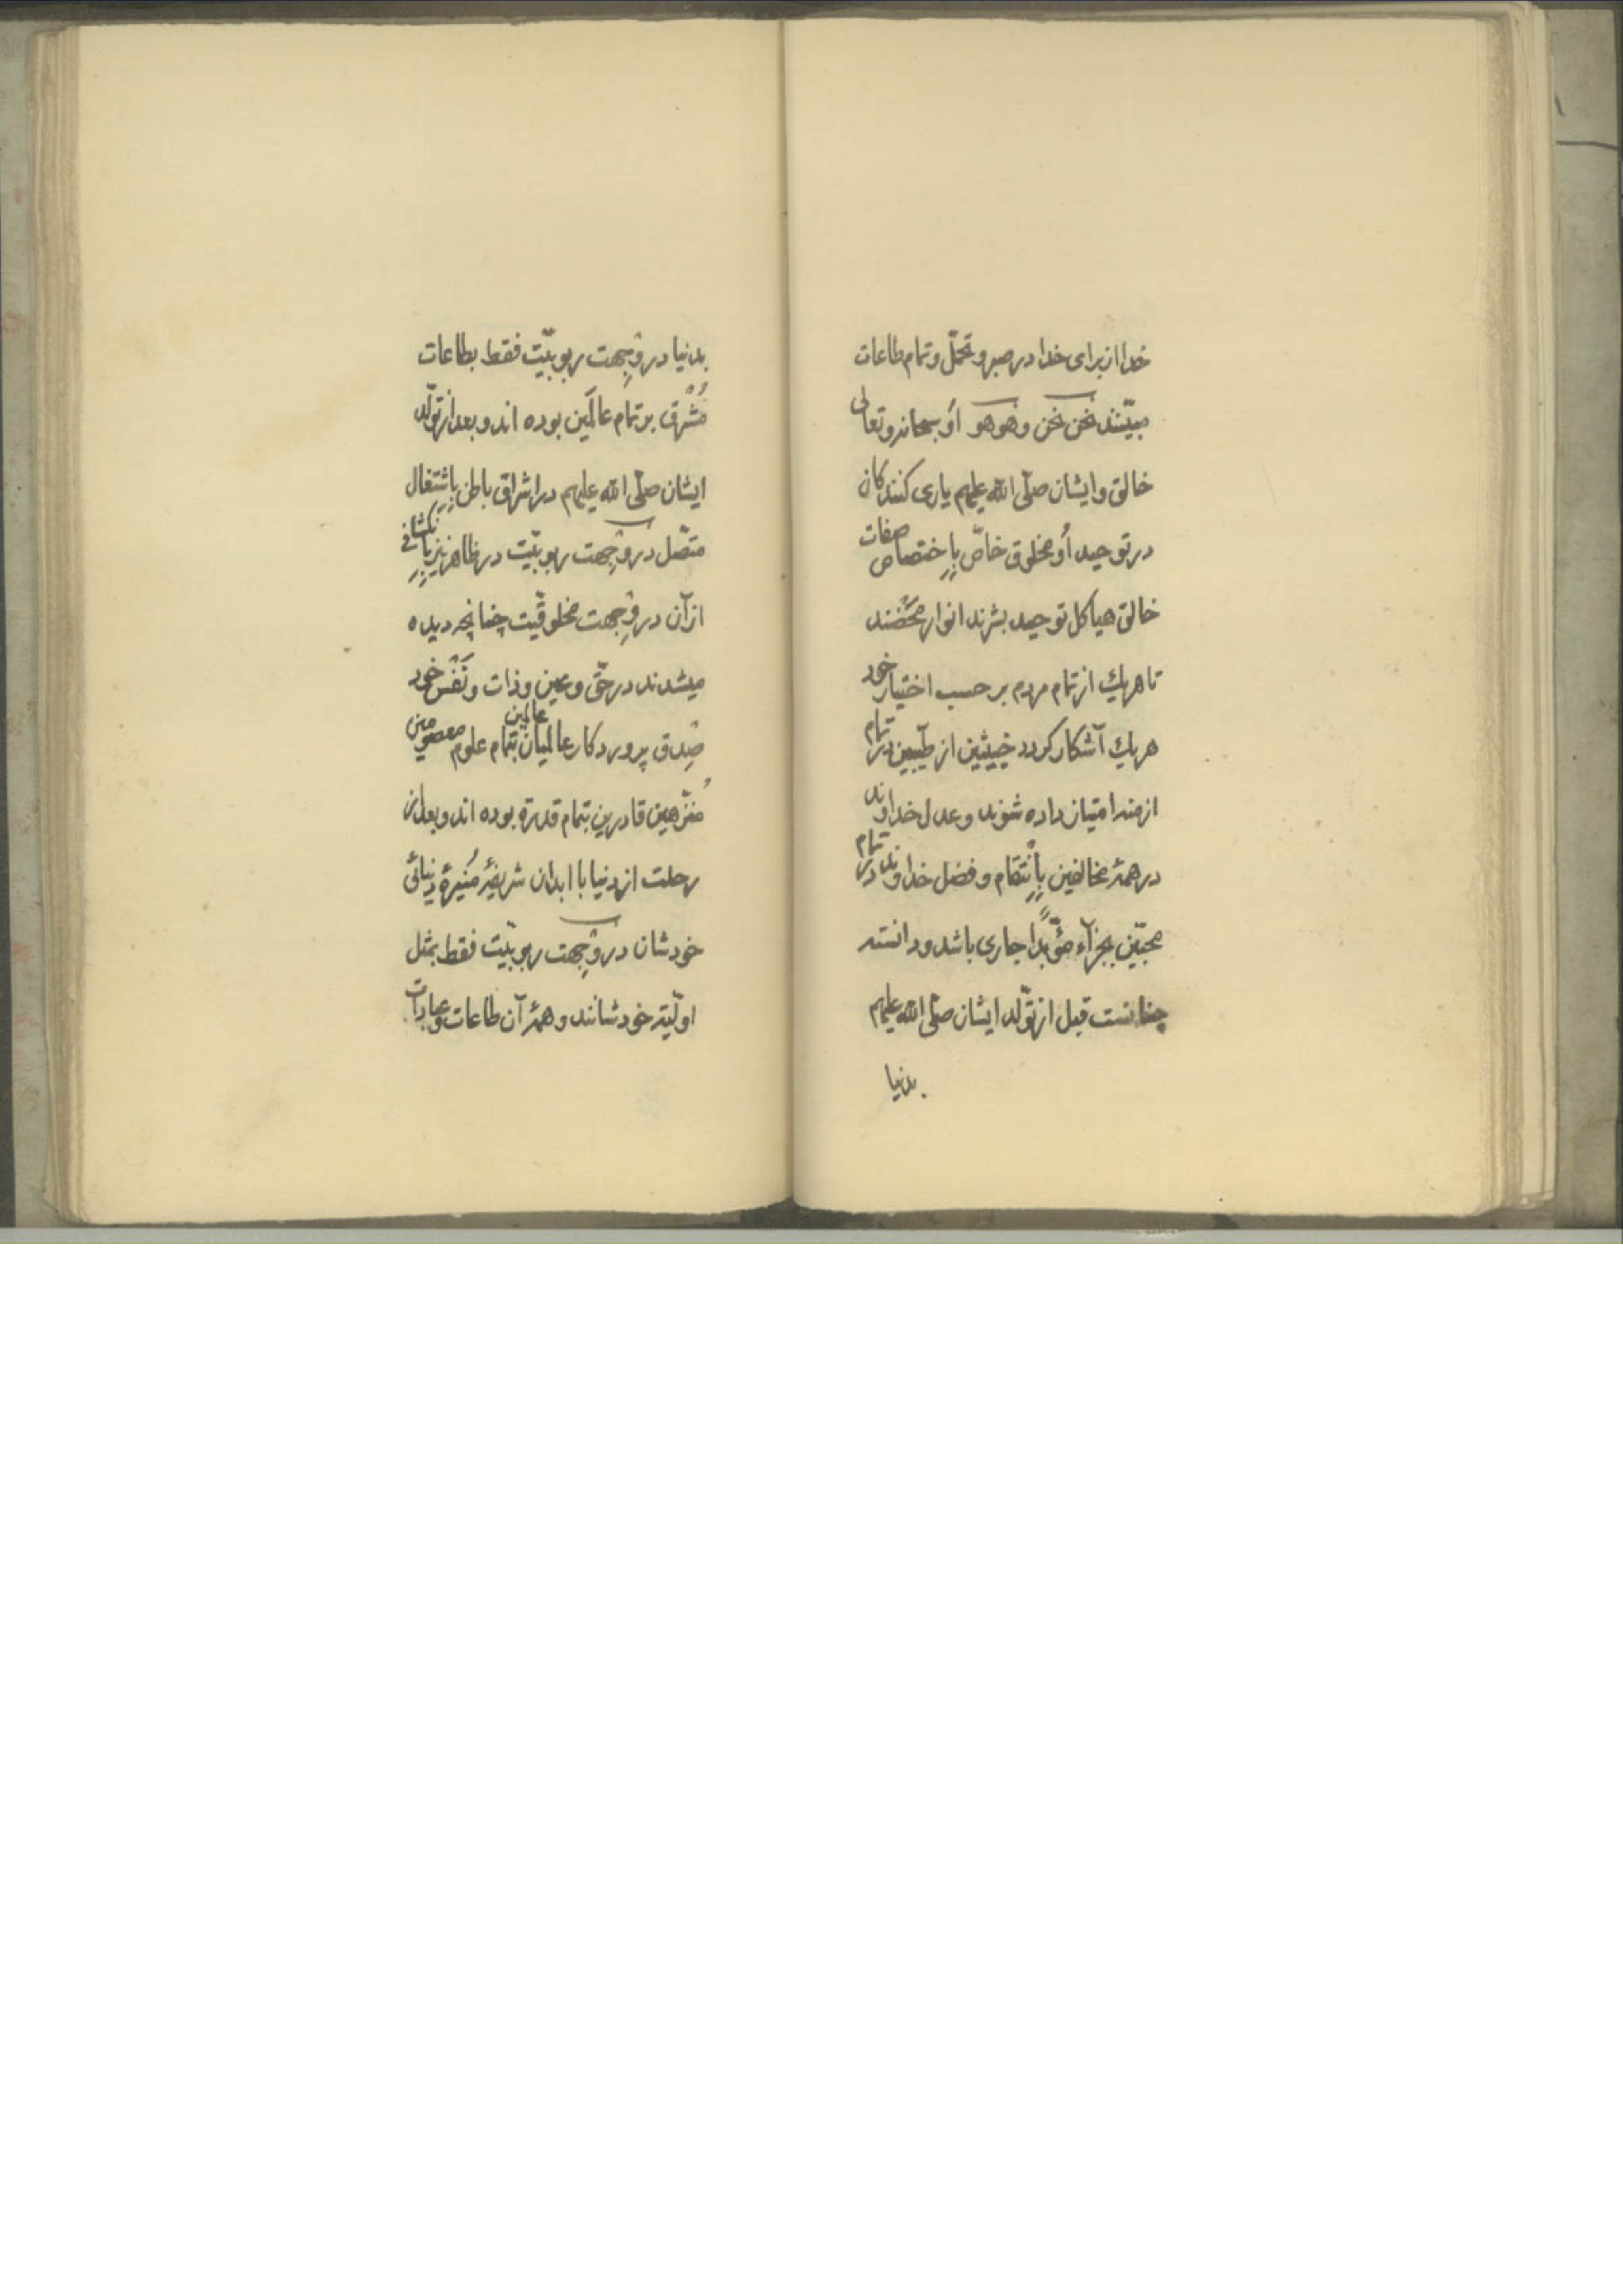 خدا از برای خدا در صبر و تحمّل و تمام طاعات
مبیّنند نحن نحن و هو هو اُو سبحانه و تعالی
خالق و ایشان صلّی الله علیهم یاری کنندکان
در توحید اُو مخلوق خاصّ بِاِختصاص صفات
خالق هیاکل توحید بشرند انوار مَحْضند
تا هریك از تمام مردم بر حسب اختیار خود
هریك آشکار کردد خبیثین از طیّبین در تمام
ازمنه امتیاز داده شوند و عدل خداوند
در همهٔ مخالفین بِاِنْتقام و فضل خداوند در تمام
محبّین بجزآء مؤبّداً جاری باشد و دانسته
چنانست قبل از تولّد ایشان صلّی الله علیهم
بدنیا
بدنیا در وِجهت ربوبیّت فقط بطاعات
مُشْرق بر تمام عالَمین بوده اند و بعد از تولّد
ایشان صلّی الله علیهم در اشراق باطن بِاِشتغال
متّصل در وِجهت ربوبیّت در ظاهر نیز
از آن در وِجهت مخلوقیّت چنانچه دیده
میشدند در حقّ و عین و ذات و نَفْس خود
صِدق پروردکار عالمیان عالمین بتمام علوم معصومین
مُنزّهین قادرین بتمام قدرة بوده اند و بعد از
رحلت از دنیا با ابدان شریفهٔ مُنیرهٔ دنیائی
خودشان در وِجهت ربوبیّت فقط بمثل
اولّیّه خودشانند و همهٔ آن طاعات و عبادات